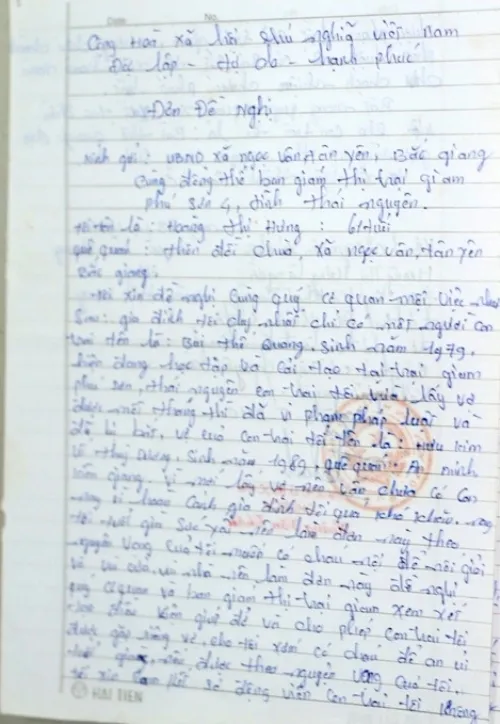 Date No.
Cộng Hoà xã hội chủ nghĩa việt Nam
Độc lập - tự do - hạnh phúc
Đơn Đề nghị
kính gửi: UBND xã ngọc vân, tân yên, Bắc giang
Cùng đồng thể ban giám thị trại giam
phú sơn 4, tỉnh thái nguyên.
tôi tên là: Hoàng thị Hưng: 61 tuổi
quê quán: thôn đồi chùa, xã ngọc vân, tân yên
Bắc giang.
tôi xin đề nghị cùng quý cơ quan một việc như
Sau: gia đình tôi duy nhất chỉ có một người con
trai tên là: Bùi thế Quang, sinh năm 1979,
hiện đang học tập và cải tạo tại trại giam
phú sơn, thái nguyên con trai tôi vừa lấy vợ
được một tháng thì đã vi phạm pháp luật và
đã bị bắt, vợ của con trai tôi tên là: kim
thuỳ Dương, sinh năm 1989, quê quán: An minh
kiên giang, vì mới lấy vợ nên vẫn chưa có con
nay vì hoàn cảnh gia đình tôi quá khó khăn,
tôi tuổi già sức yếu nên làm đơn này theo
nguyện vọng của tôi muốn có cháu nội để nối giỗi
và nên làm đơn này đề nghị
quý cơ quan và ban giám thị trại giam xem xét
cho và cho phép con trai tôi
được gặp riêng vợ cho tôi có cháu để an ủi
tuổi già, được theo nguyện vọng của tôi.
tôi xin cam kết sẽ động viên con trai tôi không
HẢI TIẾN